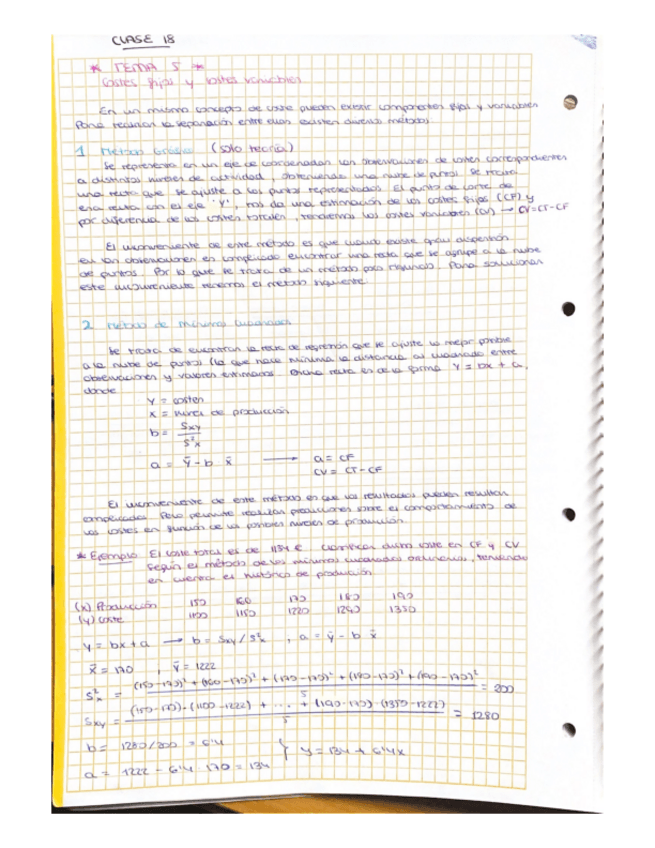 CLASE 18
* TEMA 5 *
Costes fijos y costes variables
En un mismo concepto de coste pueden existir componentes fijos y variables
Para realizar la separación entre ellos existen diversos métodos
1 Método Gráfico (solo teoría)
Se representa en un eje de coordenadas las observaciones de costes correspondientes
a distintos niveles de actividad, obteniendo una nube de puntos. Se traza
una recta que se ajuste a los puntos representados. El punto de corte de
esa recta con el eje "Y", nos da una estimación de los costes fijos (CF) y
por diferencia de los costes totales, tendremos los costes variables (CV) → CV=CT-CF
El inconveniente de este método es que cuando existe gran dispersión
en las observaciones es complicado encontrar una recta que se agrupe a la nube
de puntos. Por lo que se trata de un método poco riguroso. Para solucionar
este inconveniente tenemos el método siguiente.
2 Método de mínimos cuadrados
Se trata de encontrar la recta de regresión que se ajuste lo mejor posible
a la nube de puntos (la que hace mínima la distancia al cuadrado entre
observaciones y valores estimados. Dicha recta es de la forma Y = bx + a,
donde
Y = costes
X = nivel de producción
b = Sxy / S²x
a = ȳ - b x̄ → a = CF
CV = CT - CF
El inconveniente de este método es que los resultados pueden resultar
complicados. Pero permite realizar predicciones sobre el comportamiento de
los costes en función de los posibles niveles de producción.
* Ejemplo El coste total es de 1154 €. Cuantificar dicho coste en CF y CV
según el método de los mínimos cuadrados ordinarios, teniendo
en cuenta el histórico de producción
(x) Producción 150 160 170 180 190
(y) Coste 1100 1150 1220 1290 1350
y = bx + a → b = Sxy / S²x , a = ȳ - b x̄
x̄ = 170 , ȳ = 1222
S²x = (150-170)² + (160-170)² + (170-170)² + (180-170)² + (190-170)² / 5 = 200
Sxy = (150-170)·(1100-1222) + ... + (190-170)·(1350-1222) / 5 = 1280
b = 1280/200 = 6'4 } y = 134 + 6'4x
a = 1222 - 6'4 · 170 = 134